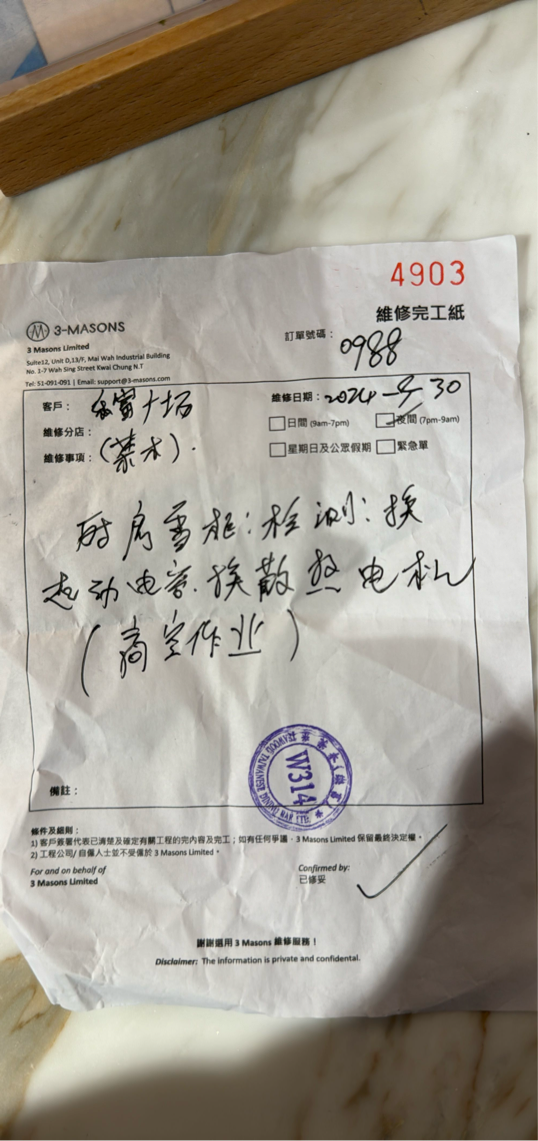 4903
維修完工紙
3-MASONS
3 Masons Limited
Suite12, Unit D,13/F, Mai Wah Industrial Building
No. 1-7 Wah Sing Street Kwai Chung N.T
Tel: 51-091-091 | Email: support@3-masons.com
訂單號碼：0988
客戶：
維修日期：2024 30
維修分店：
日間 (9am-7pm) 夜間 (7pm-9am)
維修事項：
星期日及公眾假期 緊急單
厨房雪柜：检测：换
起动电容．换散热电机
（高空作业）
W314
備註：
條件及細則：
1) 客戶簽署代表已清楚及確定有關工程的完內容及完工；如有任何爭議，3 Masons Limited 保留最終決定權。
2) 工程公司/ 自僱人士並不受僱於 3 Masons Limited。
For and on behalf of
3 Masons Limited
Confirmed by:
已修妥
謝謝選用 3 Masons 維修服務！
Disclaimer: The information is private and confidential.